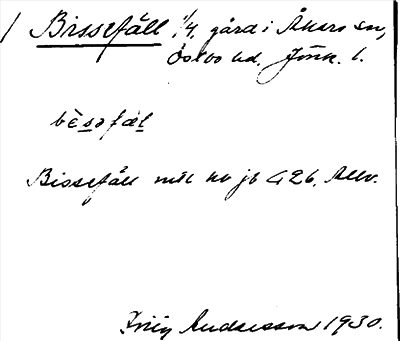 Bissefäll 1/4, gård i Åkers sn,
Östbo hd. Jönk. l.
bèsəfäl
Bissefäll mtl nr jb 426. Allv.
Andersson 1930.